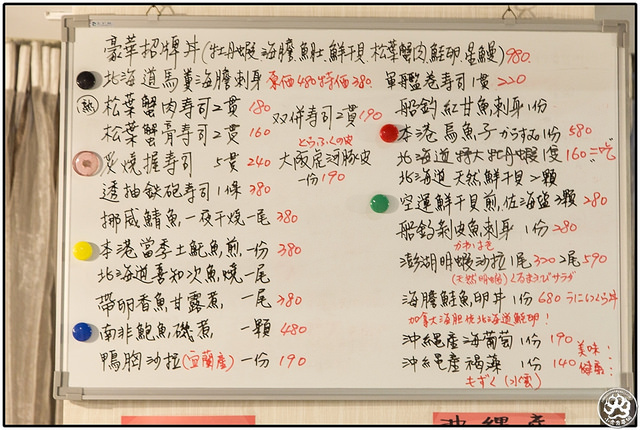 豪華招牌丼(牡丹蝦 海膽 魚肚 鮮干貝 松葉蟹肉 鮭卵 星鰻) 980
北海道馬糞海膽刺身 原價480特價380
熱 松葉蟹肉壽司2貫 180
松葉蟹膏壽司2貫 160
炙燒握壽司 5貫 240
透抽鉄砲壽司1條 380
挪威鯖魚一夜干燒一尾 380
本港當季土魠魚煎一份 380
北海道喜知次魚燒一尾
帶卵香魚甘露煮 一尾 380
南非鮑魚磯煮 一顆 480
鴨胸沙拉(宜蘭產)一份 190
双併壽司2貫 190
とらふくの皮
大阪虎河豚皮
一份 190
軍艦卷壽司1貫 220
船釣紅甘魚刺身1份
本港烏魚子 からすみ 1份 580
北海道特大牡丹蝦1隻 160
北海道天然鮮干貝2顆
空運鮮干貝煎, 佐海鹽3顆 280
船釣剝皮魚刺身1份 280
かわはぎ
澎湖明蝦沙拉1尾300 2尾590
(天然明蝦) くるまえびサラダ
海膽鮭魚卵丼1份 680 うにいくら丼
加拿大海胆佐北海道鮭卵!
沖縄産海葡萄1份 190
美味!
沖縄産褐藻 1份 140
健康!
もずく (水雲)
沖縄産